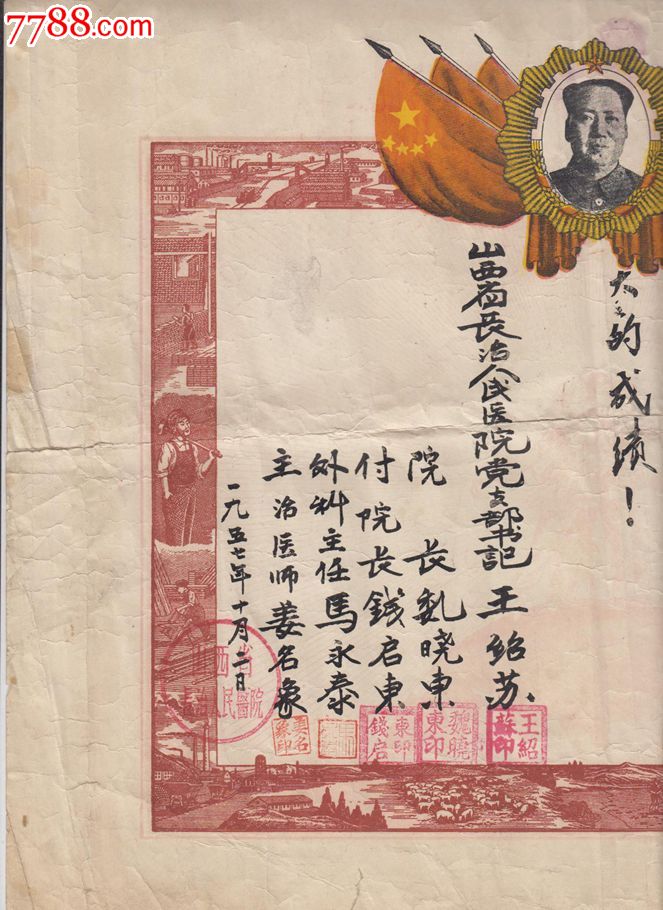 7788.com
大的成绩！
山西省长治人民医院党支部书记 王紹苏
院 長 魏晓東
付院長 錢启東
外科主任 馬永泰
主治医师 姜名象
一九五七年十月二日
王紹蘇印
魏曉東印
錢启東印